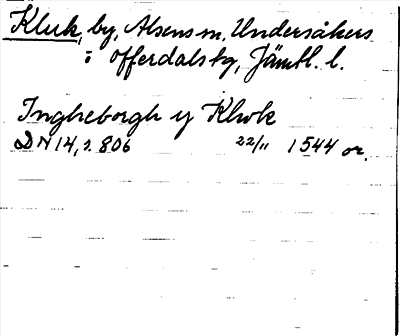 Kluk, by, Alsens sn, Undersåkers
o Offerdals tg, Jämtl. l.
Ingheborgh y Klwk
DN 14, s. 806 22/11 1544 or.